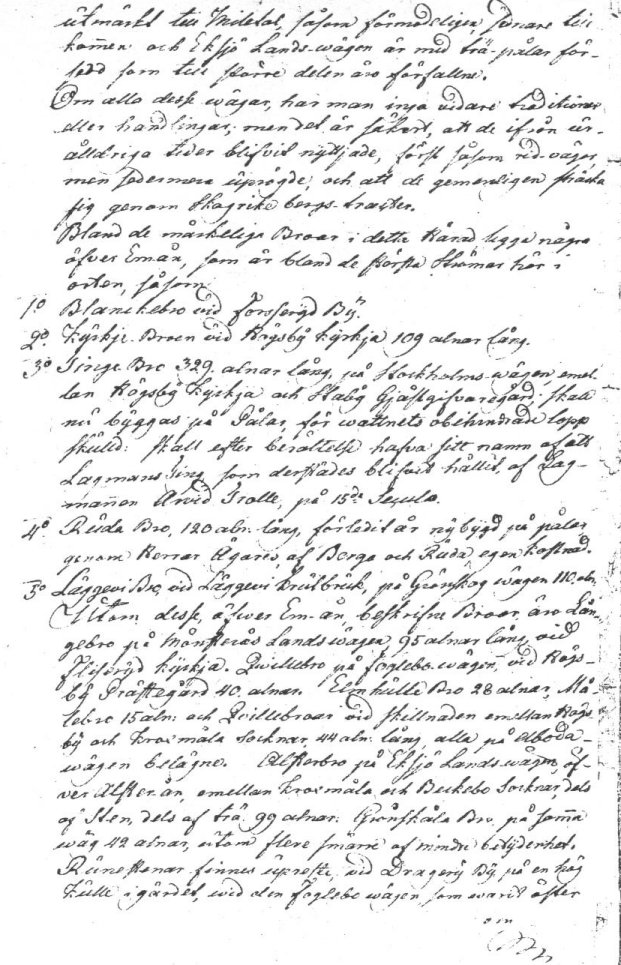 utmärkt till Miletal, såsom förmodeligen, sednare till
kom̄en och Eksjö Lands-wägen är med trä-pålar för-
sedd som till större delen äro förfallne.
Om alla desse wägar, har man inga vidare traditioner
eller handlingar; men det är säkert, att de ifrån ur-
åldriga tider blifvit nyttjade, först såsom rid-vägar,
men sedermera uprögde, och att de gemenligen sträcka
sig genom Skogrike bergs-trackter.
Bland de märkelige Broar i dette Härad ligga några
öfver Emån, som är bland de största Strömar här i
orten, såsom
1o Blanckebro vid Forsseryd By.
2o. Kyrkje-Broen vid Högsby Kyrkja 109 alnar lång.
3o Tings Bro 329. alnar lång, på Stockholms-wägen emel-
lan Högsby Kyrkja och Staby Gjästgifvaregård; skall
nu byggas på Pålar, för wattnets obehindrade lopp
skull: skall efter berättelse hafva sitt namn af ett
Lagmans Ting, som derstädes blifvit hållit, af Lag-
mannen Arvid Trolle, på 15de Seculo.
4o Ruda Bro, 120 aln. lång, förledit år ny bygd på pålar
genom Herrar Ägares, af Berga och Ruda egen kostnad.
5o Läggevi Bro, vid Läggevi Krutbruk, på Grönskog wägen 110. aln.
Utom desse, öfwer Em-ån, beskrifne Broar, äro Lån-
gebro på Mönsterås Landswägen, 95 alnar lång vid
Fliseryd kyrkja. Quillebro på foglebo-wägen, vid Högs-
by Prästegård 40. alnar. Elmhulle Bro 28 alnar, Må-
lebro 15 aln: och Qvillebroar vid skillnaden emellan Högs-
by och Kroxmåla Socknar, 44 aln. lång, alla på Alboda-
wägen belägne. Alsterbro på Eksjö Landswägen, öf-
ver Alster-ån, emellan Kroxmåla och Beckebo Socknar, dels
af Sten, dels af trä. 99 alnar. Grönskåla Bro, på som̄a
wäg 42 alnar, utom flere smärre af mindre betydenhet.
Runestenar finnes upreste, vid Drageryd By, på en hög
kulle i gärdet, wid den Foglebo wägen som warit öfter
om